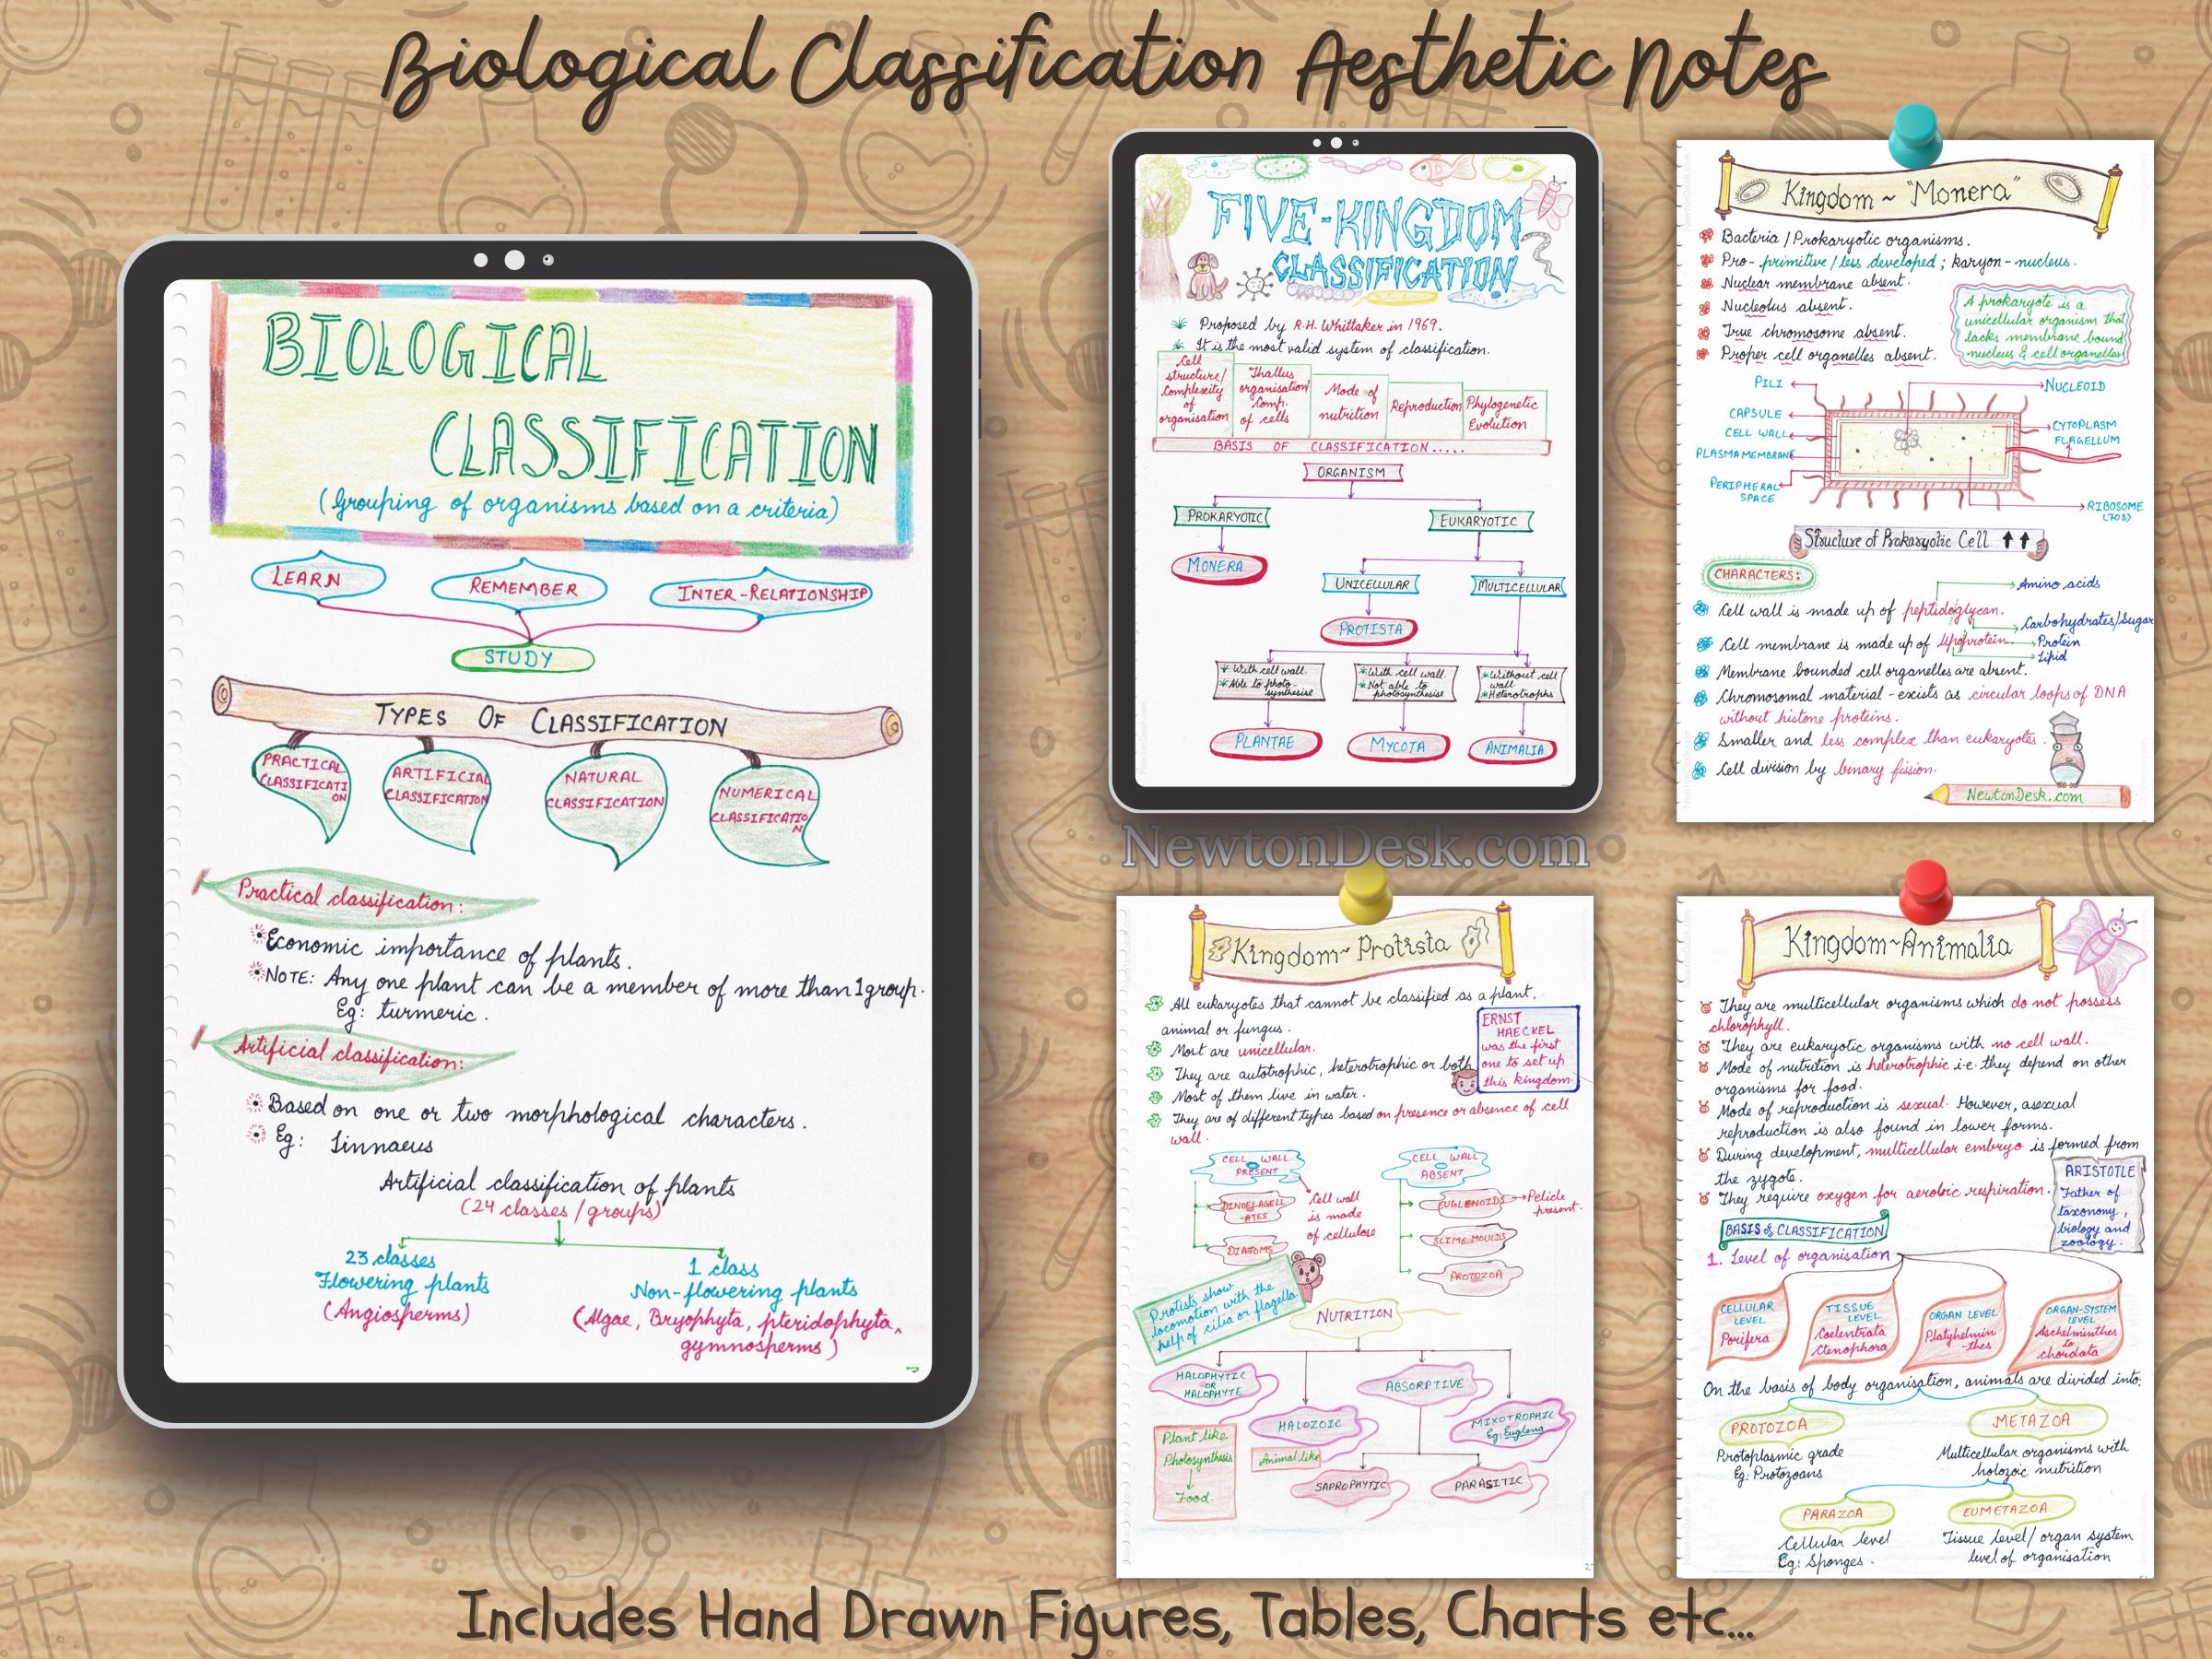 Biological Classification Aesthetic Notes
BIOLOGICAL
CLASSIFICATION
(Grouping of organisms based on a criteria)
LEARN
REMEMBER
INTER-RELATIONSHIP
STUDY
TYPES OF CLASSIFICATION
PRACTICAL
CLASSIFICATI
ON
ARTIFICIAL
CLASSIFICATION
NATURAL
CLASSIFICATION
NUMERICAL
CLASSIFICATIO
N
Practical classification:
Economic importance of plants.
NOTE: Any one plant can be a member of more than 1 group.
Eg: turmeric.
Artificial classification:
Based on one or two morphological characters.
Eg: Linnaeus
Artificial classification of plants
(24 classes/groups)
23 classes
Flowering plants
(Angiosperms)
1 class
Non-flowering plants
(Algae, Bryophyta, pteridophyta,
gymnosperms)
FIVE-KINGDOM
CLASSIFICATION
Proposed by R.H. Whittaker in 1969.
It is the most valid system of classification.
Cell
structure/
Complexity
of
organisation
Thallus
organisation/
Comp.
of cells
Mode of
nutrition
Reproduction
Phylogenetic
Evolution
BASIS OF CLASSIFICATION.....
ORGANISM
PROKARYOTIC
EUKARYOTIC
MONERA
UNICELLULAR
MULTICELLULAR
PROTISTA
With cell wall.
Able to photo-
synthesise
With cell wall.
Not able to
photosynthesise
Without cell
wall
Heterotrophs
PLANTAE
MYCOTA
ANIMALIA
NewtonDesk.com
Kingdom ~ "Monera"
Bacteria/Prokaryotic organisms.
Pro- primitive/less developed; karyon-nucleus.
Nuclear membrane absent.
Nucleolus absent.
True chromosome absent.
Proper cell organelles absent.
A prokaryote is a
unicellular organism that
lacks membrane bound
nucleus & cell organelles
PILI
CAPSULE
CELL WALL
PLASMA MEMBRANE
PERIPHERAL
SPACE
NUCLEOID
CYTOPLASM
FLAGELLUM
RIBOSOME
(70S)
Structure of Prokaryotic Cell
CHARACTERS:
Cell wall is made up of peptidoglycan.
Amino acids
Carbohydrates/Sugar
Cell membrane is made up of lipoprotein
Protein
Lipid
Membrane bounded cell organelles are absent.
Chromosomal material - exists as circular loops of DNA
without histone proteins.
Smaller and less complex than eukaryotes.
Cell division by binary fission.
NewtonDesk.com
Kingdom~Protista
All eukaryotes that cannot be classified as a plant,
animal or fungus.
Most are unicellular.
They are autotrophic, heterotrophic or both
Most of them live in water.
They are of different types based on presence or absence of cell
wall.
ERNST
HAECKEL
was the first
one to set up
this kingdom.
CELL WALL
PRESENT
DINOFLAGELL
-ATES
DIATOMS
Cell wall
is made
of cellulose
CELL WALL
ABSENT
EUGLENOIDS
Pelicle
present.
SLIME MOULDS
PROTOZOA
Protists show
locomotion with the
help of cilia or flagella.
NUTRITION
HALOPHYTIC
OR
HALOPHYTE
HALOZOIC
ABSORPTIVE
MIXOTROPHIC
Eg: Euglena
Plant like
Photosynthesis
Food.
Animal like
SAPROPHYTIC
PARASITIC
Kingdom~Animalia
They are multicellular organisms which do not possess
chlorophyll.
They are eukaryotic organisms with no cell wall.
Mode of nutrition is heterotrophic i.e. they depend on other
organisms for food.
Mode of reproduction is sexual. However, asexual
reproduction is also found in lower forms.
During development, multicellular embryo is formed from
the zygote.
They require oxygen for aerobic respiration.
ARISTOTLE
Father of
taxonomy,
biology and
zoology.
BASIS of CLASSIFICATION
1. Level of organisation
CELLULAR
LEVEL
Porifera
TISSUE
LEVEL
Coelentrata
Ctenophora
ORGAN LEVEL
Platyhelmin
-thes
ORGAN-SYSTEM
LEVEL
Aschelminthes
to
chordata
On the basis of body organisation, animals are divided into:
PROTOZOA
Protoplasmic grade
Eg: Protozoans
METAZOA
Multicellular organisms with
holozoic nutrition
PARAZOA
Cellular level
Eg: Sponges.
EUMETAZOA
Tissue level/organ system
level of organisation
Includes Hand Drawn Figures, Tables, Charts etc...